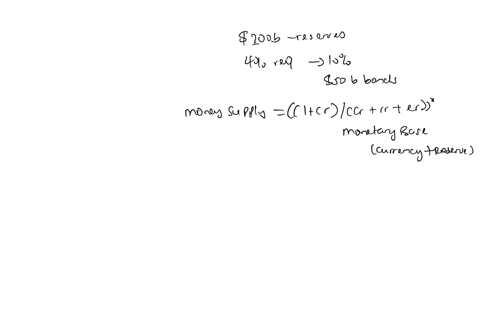 $200b - reserves
4% req → 10%
$50 b bonds
money supply = ((1+cr)/(cr + rr + er))*
monetary Base
(currency + Reserve)